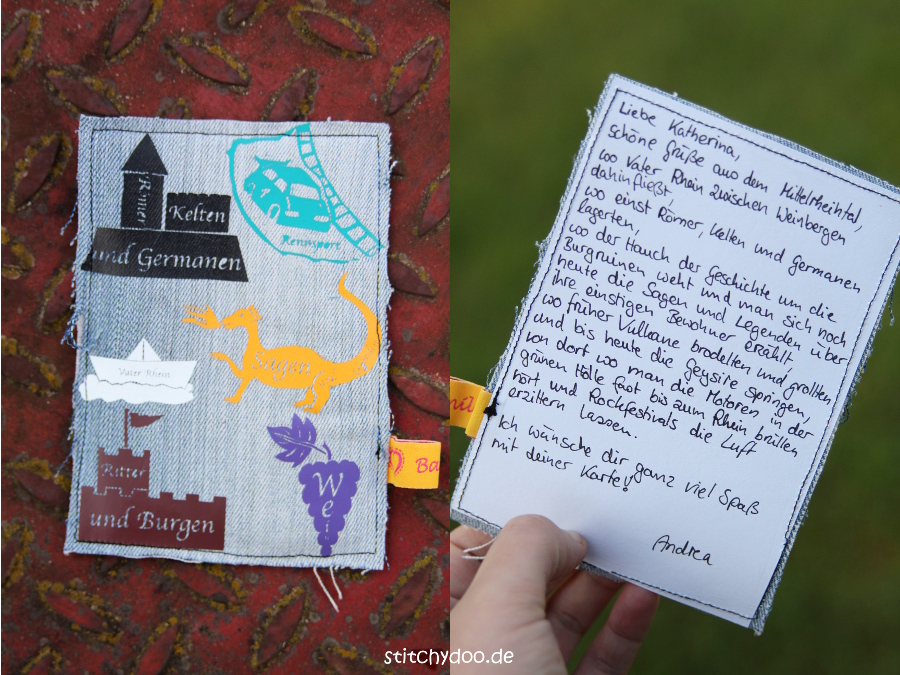 Römer
Kelten
und Germanen
Rennsport
Sagen
Vater Rhein
Ritter
und Burgen
Wein
Ba
Liebe Katherina,
schöne Grüße aus dem Mittelrheihtal,
wo Vater Rhein zwischen Weinbergen
dahinfließt,
wo einst Römer, Kelten und Germanen
lagerten,
wo der Hauch der Geschichte um die
Burgruinen weht und man sich noch
heute die Sagen und Legenden über
ihre einstigen Bewohner erzählt,
wo früher Vulkane brodelten und grollten
und bis heute die Geysire springen,
von dort wo man die Motoren in der
grünen Hölle fast bis zum Rhein brüllen
hört und Rockfestivals die Luft
erzittern lassen.
Ich wünsche dir ganz viel Spaß
mit deiner Karte!
Andrea
stitchydoo.de